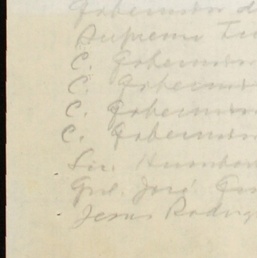 Gobernador d
Supremo Tri
C. Gobernador
C. Gobernador
C. Gobernador
C. Gobernador
Sr.
Gral. José
Jesus Rodrig